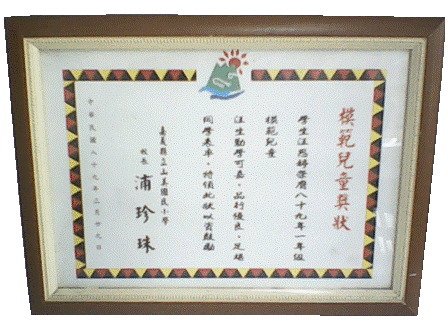 模範兒童獎狀
學生汪恩綺榮膺八十九年一年級
模範兒童
汪生勤學可嘉，品行優良，足堪
同學表率，特頒此狀以資鼓勵
嘉義縣立山美國民小學
校長 浦珍珠
中華民國八十九年三月廿九日